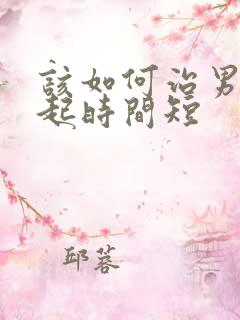 該如何治男
起時間短
邱蓉